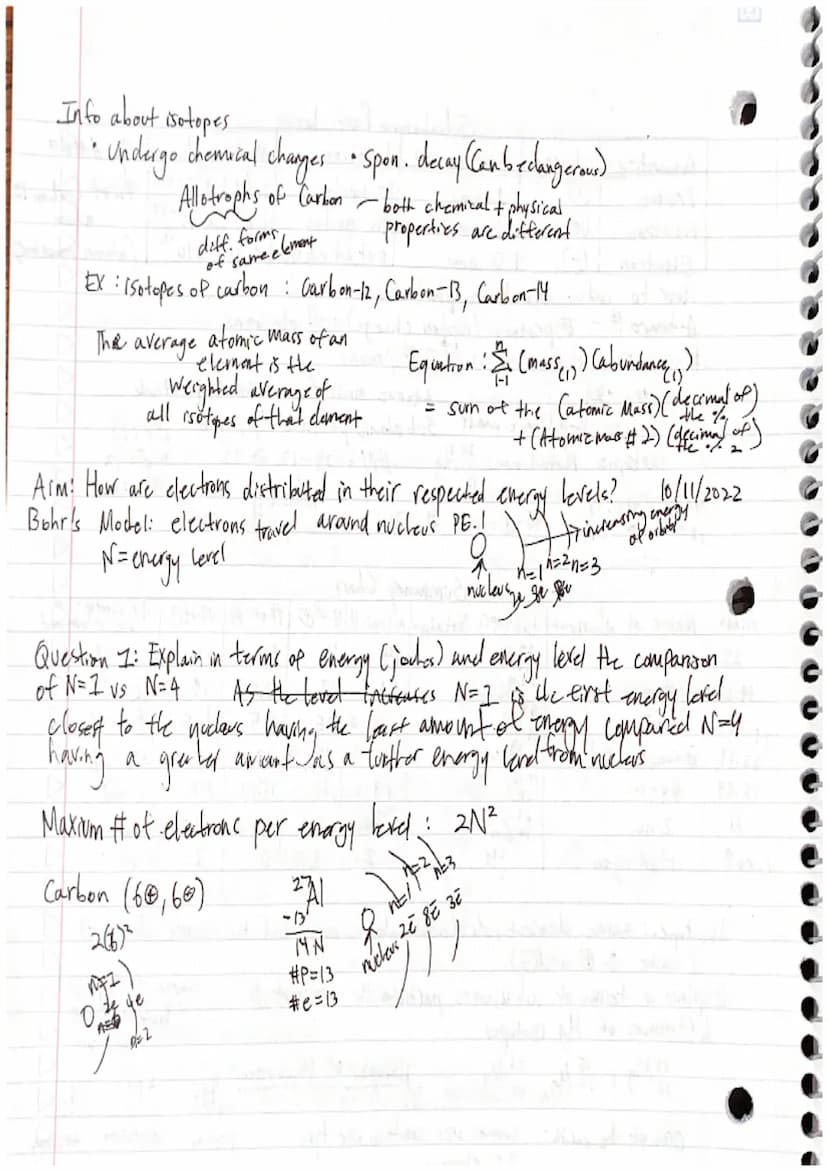 Info about isotopes
• Undergo chemical changes • Spon. decay (Can be dangerous)
Allotrophs of Carbon — both chemical + physical
properties are different
diff. forms
of same element
EX : isotopes of carbon : Carbon-12, Carbon-13, Carbon-14
The average atomic mass of an
element is the
Weighted average of
all isotopes of that element
Equation : n Σ i-1 (mass(1)) (abundance(1))
= sum of the (atomic Mass) (decimal of the %)
+ (Atomic mass # 2) (decimal of the % 2)
Aim: How are electrons distributed in their respected energy levels? 10/11/2022
Bohr's Model: electrons travel around nucleus PE.
N = energy level
increasing energy
of orbit
n=1 n=2 n=3
nucleus 2e 8e
Question 1: Explain in terms of energy (joules) and energy level the comparison
of N=1 vs N=4 As the level increases N=1 is the first energy level
closest to the nucleus having the least amount of energy compared N=4
having a greater amount as a further energy level from nucleus
Maxium # of electrons per energy level : 2N²
Carbon (6⊕, 6⊖)
2(6)²
n=1
2e 4e
n=2
27 Al
-13
14 N
#P=13
#e=13
n=1 n=2 n=3
nucleus 2e̅ 8e̅ 3e̅